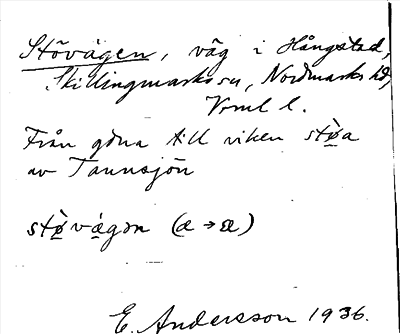 Stövägen, väg i Hångstad,
Skillingmarks sn, Nordmarks hd,
Vrml l.
Från gdna till viken stø̀a
av Tannsjön
stø̀vágən (a→æ)
E. Andersson 1936.